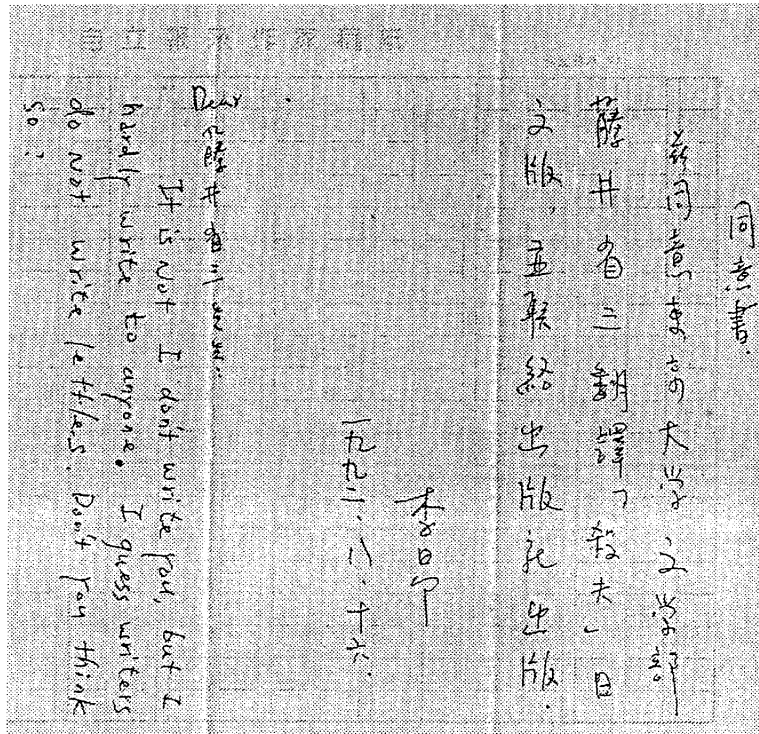 同意書.
茲同意東京大学文学部
藤井省三翻譯「殺夫」日
文版,並联絡出版社出版.
李昂
一九九二、八、十六.
Dear 藤井省三
It is not I don't write you, but I
hardly write to anyone. I guess writers
do not write lettles. Don't you think
so?